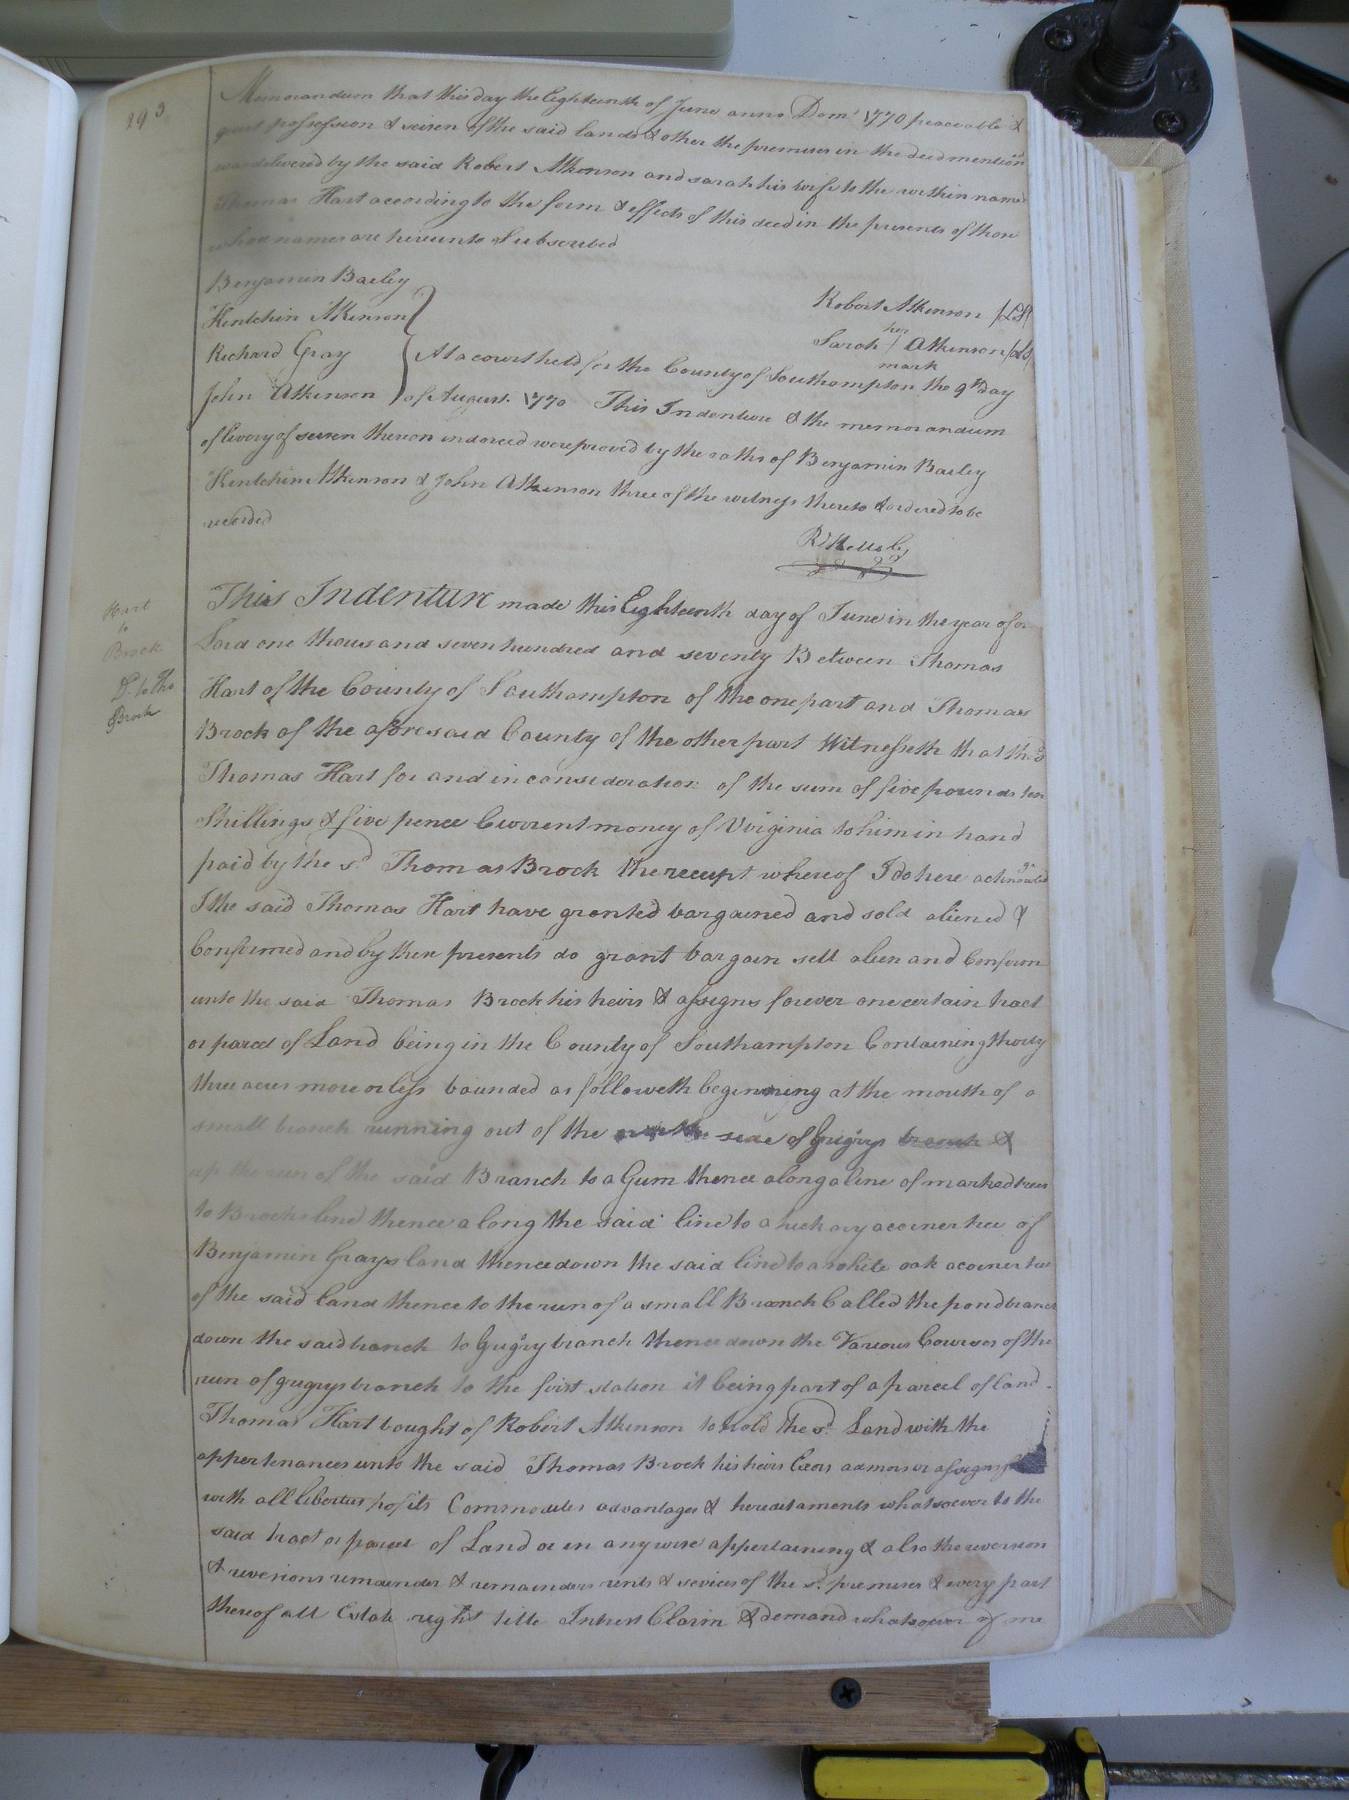 193
Memorandum that this day the Eighteenth of June anno Dom: 1770 peaceable &
quiet possession & seisen of the said lands & other the premises in the deed mention'd
was delivered by the said Robert Atkinson and sarah his wife to the within named
Thomas Hart according to the form & effects of this deed in the presents of those
whose names are hereunto Subscribed
Benjamin Bailey
Hentchin Atkinson
Richard Gray
John Atkinson
Robert Atkinson (LS)
her
Sarah / Atkinson (LS)
mark
At a court held for the County of Southampton the 9th day
of August 1770 This Indenture & the memorandum
of livery of seisen thereon indorced were proved by the oaths of Benjamin Bailey
Hentchin Atkinson & John Atkinson three of the witness thereto & ordered to be
recorded
R Kello Cy
Hart
to
Brock
Dd to Tho
Brock
This Indenture made this Eighteenth day of June in the year of or
Lord one thousand seven hundred and seventy Between Thomas
Hart of the County of Southampton of the one part and Thomas
Brock of the aforesaid County of the other part Witnesseth that the sd
Thomas Hart for and in consideration of the sum of five pounds ten
Shillings & five pence Current money of Virginia to him in hand
paid by the sd Thomas Brock the receipt whereof I do here acknowledge
I the said Thomas Hart have granted bargained and sold aliened &
Confirmed and by these presents do grant bargain sell alien and Confirm
unto the said Thomas Brock his heirs & assigns forever one certain tract
or parcel of Land being in the County of Southampton Containing thirty
three acres more or less bounded as followeth beginning at the mouth of a
small branch running out of the side of Gugrys branch &
up the run of the said Branch to a Gum thence along a line of marked trees
to Brocks line thence along the said line to a hickory a corner tree of
Benjamin Grays land thence down the said line to a white oak a corner tree
of the said land thence to the run of a small Branch Called the pond branch
down the said branch to Gugry branch thence down the Various Courses of the
run of gugrys branch to the first station it being part of a parcel of land
Thomas Hart bought of Robert Atkinson to hold the sd Land with the
appertenances unto the said Thomas Brock his heirs Exors admors or assigns
with all liberties profits Commodities advantages & hereditaments whatsoever to the
said tract or parcel of Land or in any wise appertaining & also the reversion
& reversions remainder & remainders rents & sevices of the sd premises & every part
thereof all Estate right title Intrest Claim & demand whatsoever of me